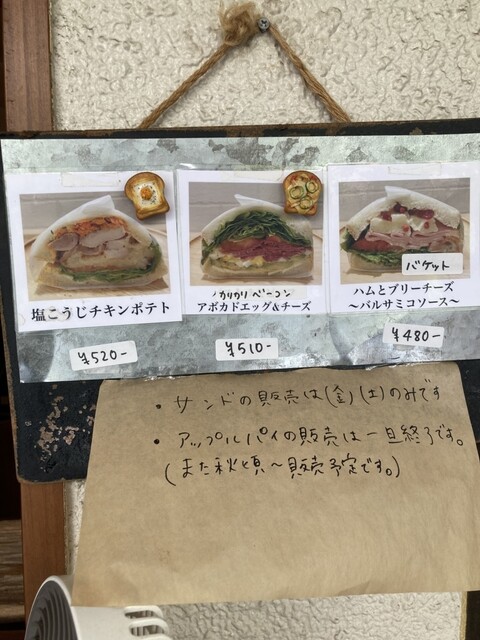 塩こうじチキンポテト
¥520-
カリカリベーコン
アボカドエッグ&チーズ
¥510-
バゲット
ハムとブリーチーズ
~バルサミコソース~
¥480-
・サンドの販売は(金)(土)のみです
・アップルパイの販売は一旦終了です。
(また秋頃~販売予定です。)